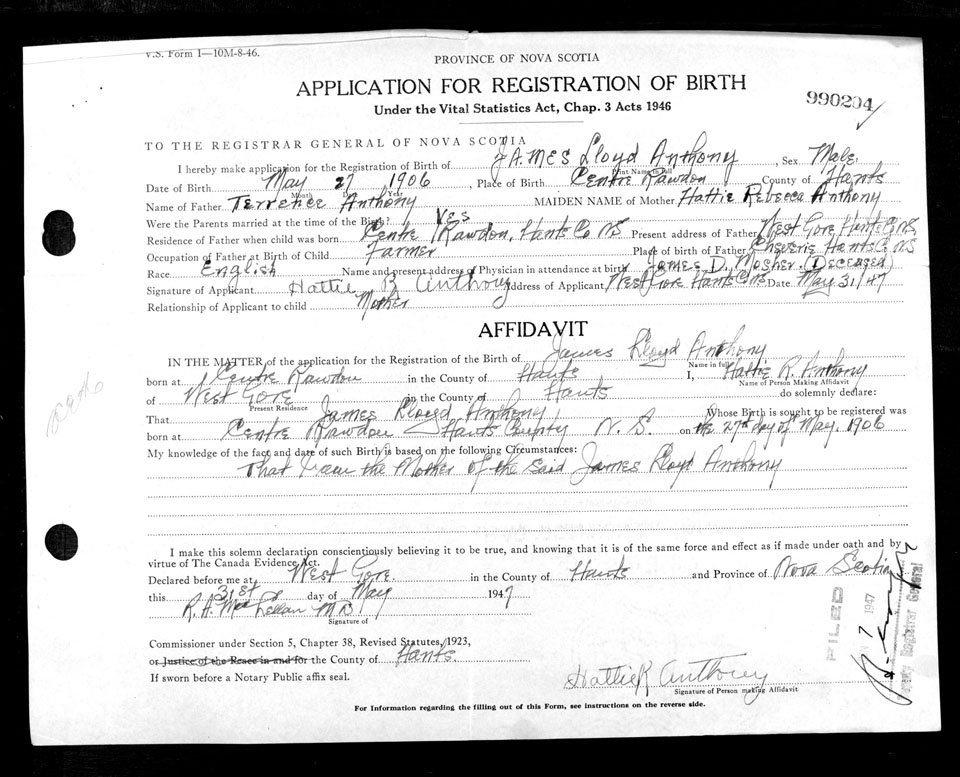 V.S. Form 1—10M-8-46.
PROVINCE OF NOVA SCOTIA
APPLICATION FOR REGISTRATION OF BIRTH
Under the Vital Statistics Act, Chap. 3 Acts 1946
990204
TO THE REGISTRAR GENERAL OF NOVA SCOTIA
I hereby make application for the Registration of Birth of JAMES Lloyd Anthony Sex Male
Print Name in full
Date of Birth May 27 1906, Place of Birth Centre Rawdon County of Hants
Month Day Year
Name of Father Terrence Anthony MAIDEN NAME of Mother Hattie Rebecca Anthony
Were the Parents married at the time of the Birth? Yes
Residence of Father when child was born Centre Rawdon, Hants Co NS Present address of Father West Gore Hants Co NS
Occupation of Father at Birth of Child Farmer Place of birth of Father Cheverie Hants Co NS
Race English Name and present address of Physician in attendance at birth James D. Mosher (Deceased)
Signature of Applicant Hattie R Anthony Address of Applicant West Gore Hants Co NS Date May 31/47
Relationship of Applicant to child Mother
AFFIDAVIT
IN THE MATTER of the application for the Registration of the Birth of James Lloyd Anthony
Name in full
born at Centre Rawdon in the County of Hants I, Hattie R. Anthony
Name of Person Making Affidavit
of West Gore in the County of Hants do solemnly declare:
Present Residence
That James Lloyd Anthony Whose Birth is sought to be registered was
born at Centre Rawdon Hants County N. S. on the 27th day of May. 1906
My knowledge of the fact and date of such Birth is based on the following Circumstances:
That I am the Mother of the said James Lloyd Anthony
I make this solemn declaration conscientiously believing it to be true, and knowing that it is of the same force and effect as if made under oath and by
virtue of The Canada Evidence Act.
Declared before me at West Gore. in the County of Hants and Province of Nova Scotia
this 31st day of May 1947
R. A. MacLellan MD
Signature of
Commissioner under Section 5, Chapter 38, Revised Statutes, 1923,
or Justice of the Peace in and for the County of Hants
If sworn before a Notary Public affix seal.
Hattie R Anthony
Signature of Person making Affidavit
For Information regarding the filling out of this Form, see instructions on the reverse side.
FILED
7 1947
Deputy Registrar General